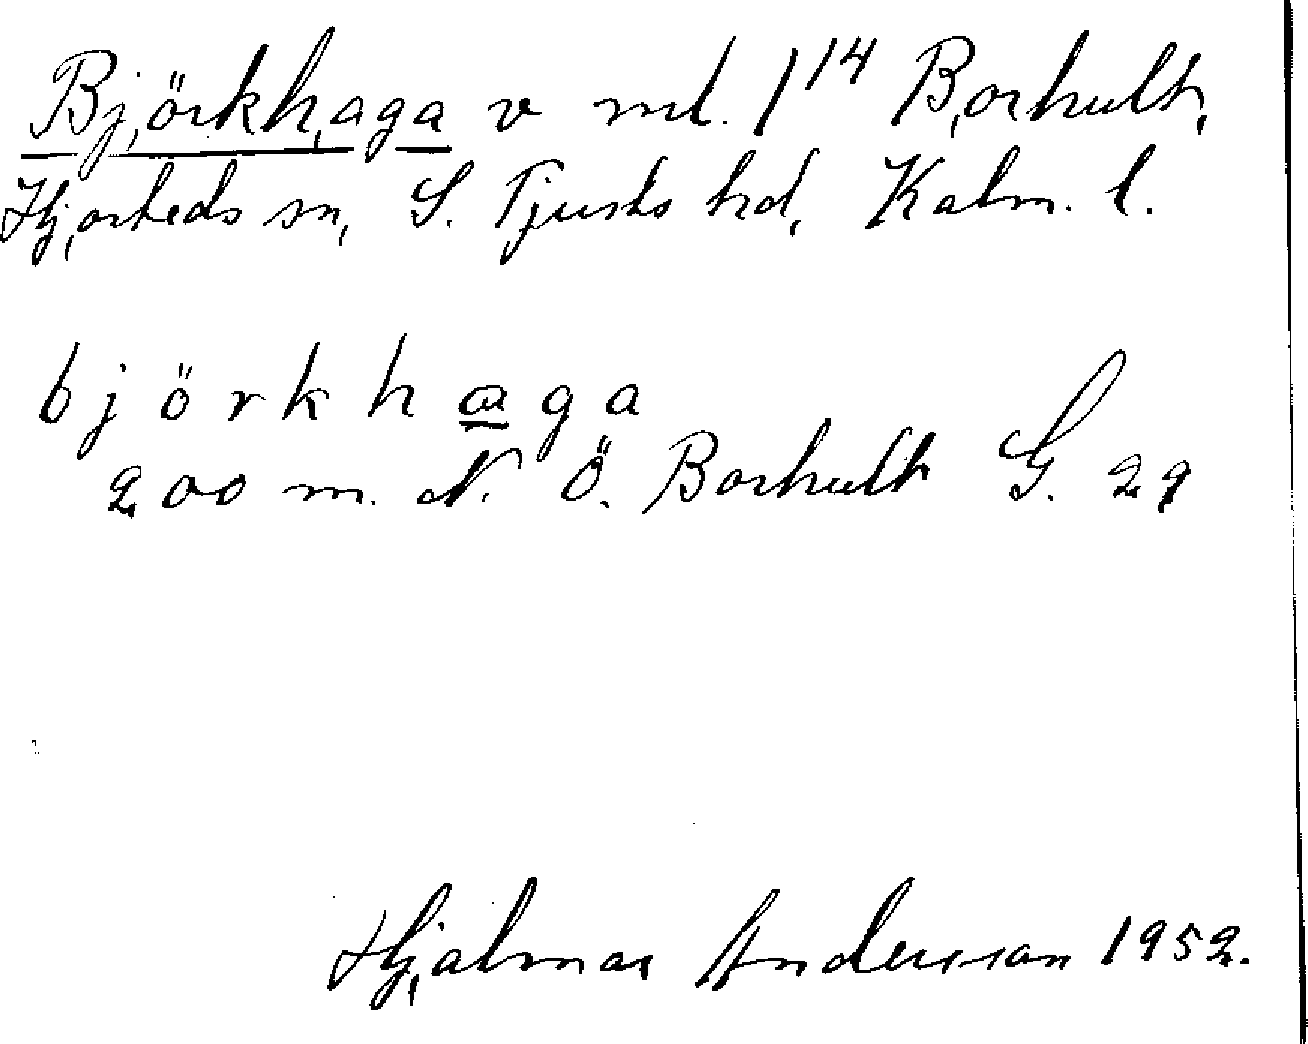 Björkhaga v md. 1 14 Borhult,
Hjorteds sn, S. Tjusts hd, Kalm. l.
björkhaga
200 m. N. Ö. Borhult G. 29
Hjalmar Andersson 1952.